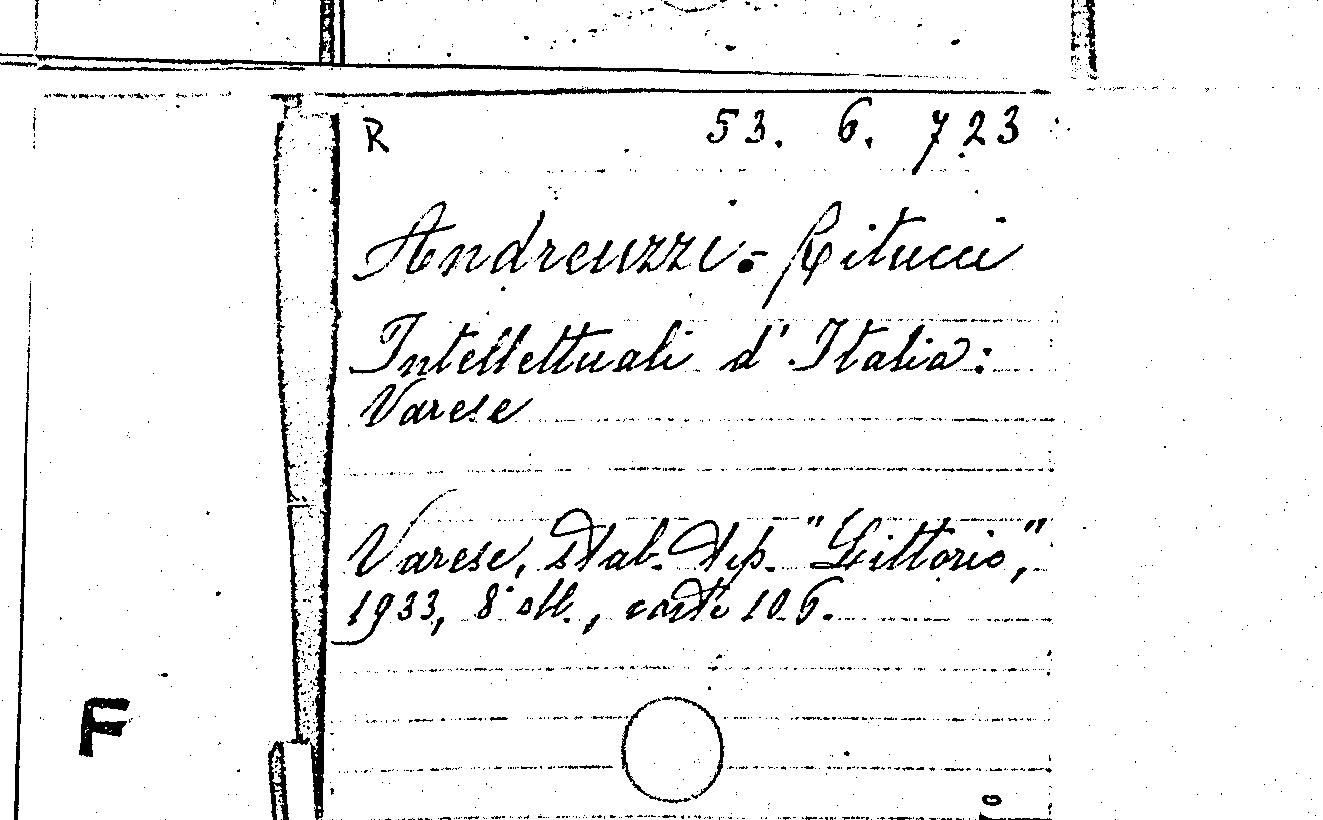 R 53. 6. 723
Andreuzzi=Ritucci
Intellettuali d'Italia:
Varese
Varese, Stab. Tip. "Littorio",
1933, 8° ott., carte 106.
F